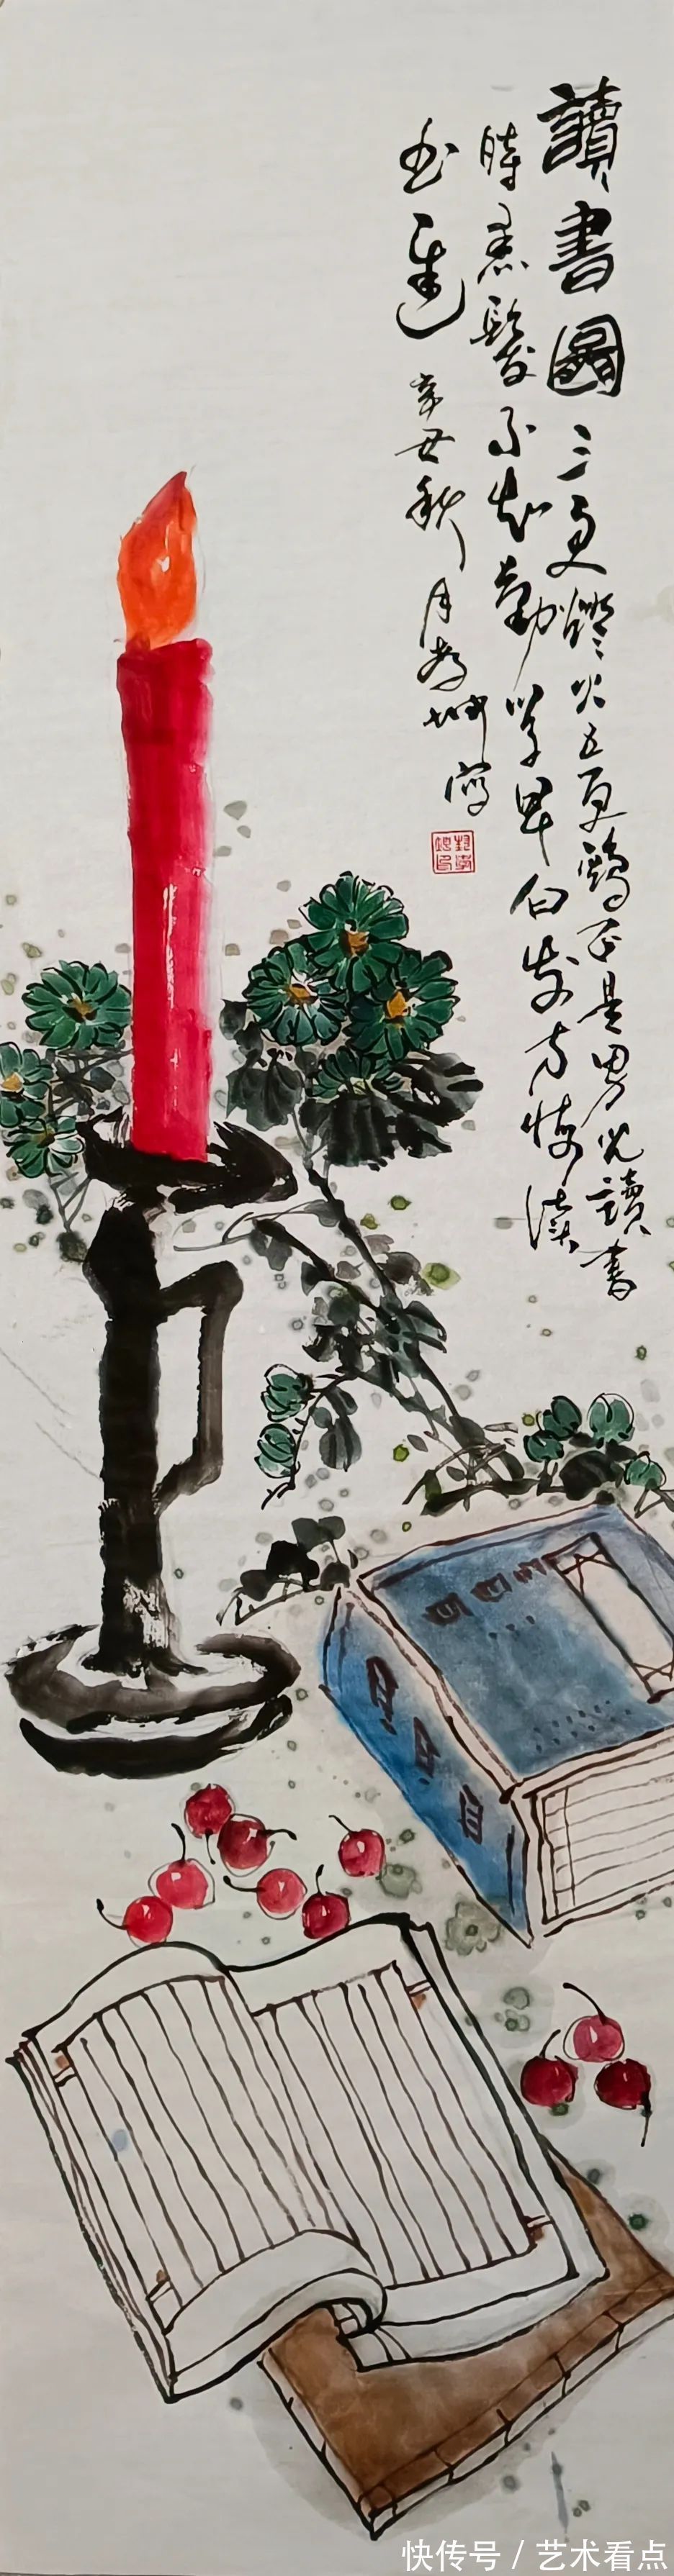 讀書圖 三更燈火五更鷄正是男兒讀書
時黑髮不知勤學早白发方悔读
书遲 辛丑秋月孝坤寫
快传号 / 艺术看点